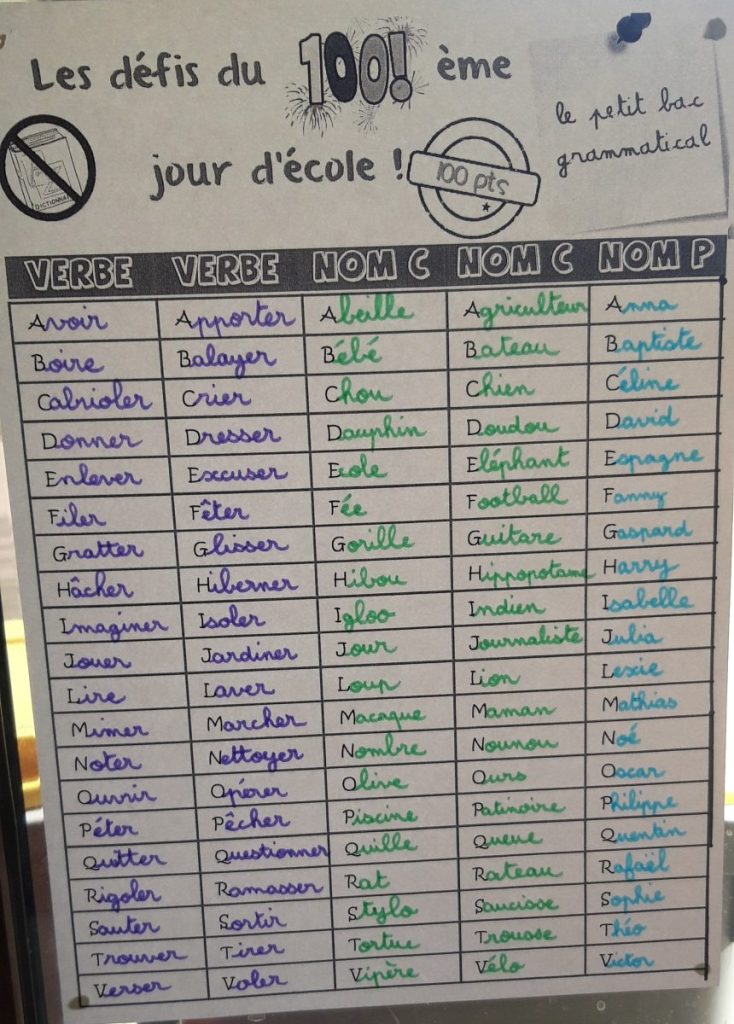 Les défis du 100! ème
jour d'école !
100 pts
le petit bac
grammatical
DICTIONNAI
VERBE VERBE NOM C NOM C NOM P
Avoir Apporter Abeille Agriculteur Anna
Boire Balayer Bébé Bateau Baptiste
Cabrioler Crier Chou Chien Céline
Donner Dresser Dauphin Doudou David
Enlever Excuser Ecole Eléphant Espagne
Filer Fêter Fée Football Fanny
Gratter Glisser Gorille Guitare Gaspard
Hâcher Hiberner Hibou Hippopotame Harry
Imaginer Isoler Igloo Indien Isabelle
Jouer Jardiner Jour Journaliste Julia
Lire Laver Loup Lion Lexie
Mimer Marcher Macaque Maman Mathias
Noter Nettoyer Nombre Nounou Noé
Ouvrir Opérer Olive Ours Oscar
Péter Pêcher Piscine Patinoire Philippe
Quitter Questionner Quille Queue Quentin
Rigoler Ramasser Rat Rateau Rafaël
Sauter Sortir Stylo Saucisse Sophie
Trouver Tirer Tortue Trousse Théo
Verser Voler Vipère Vélo Victor